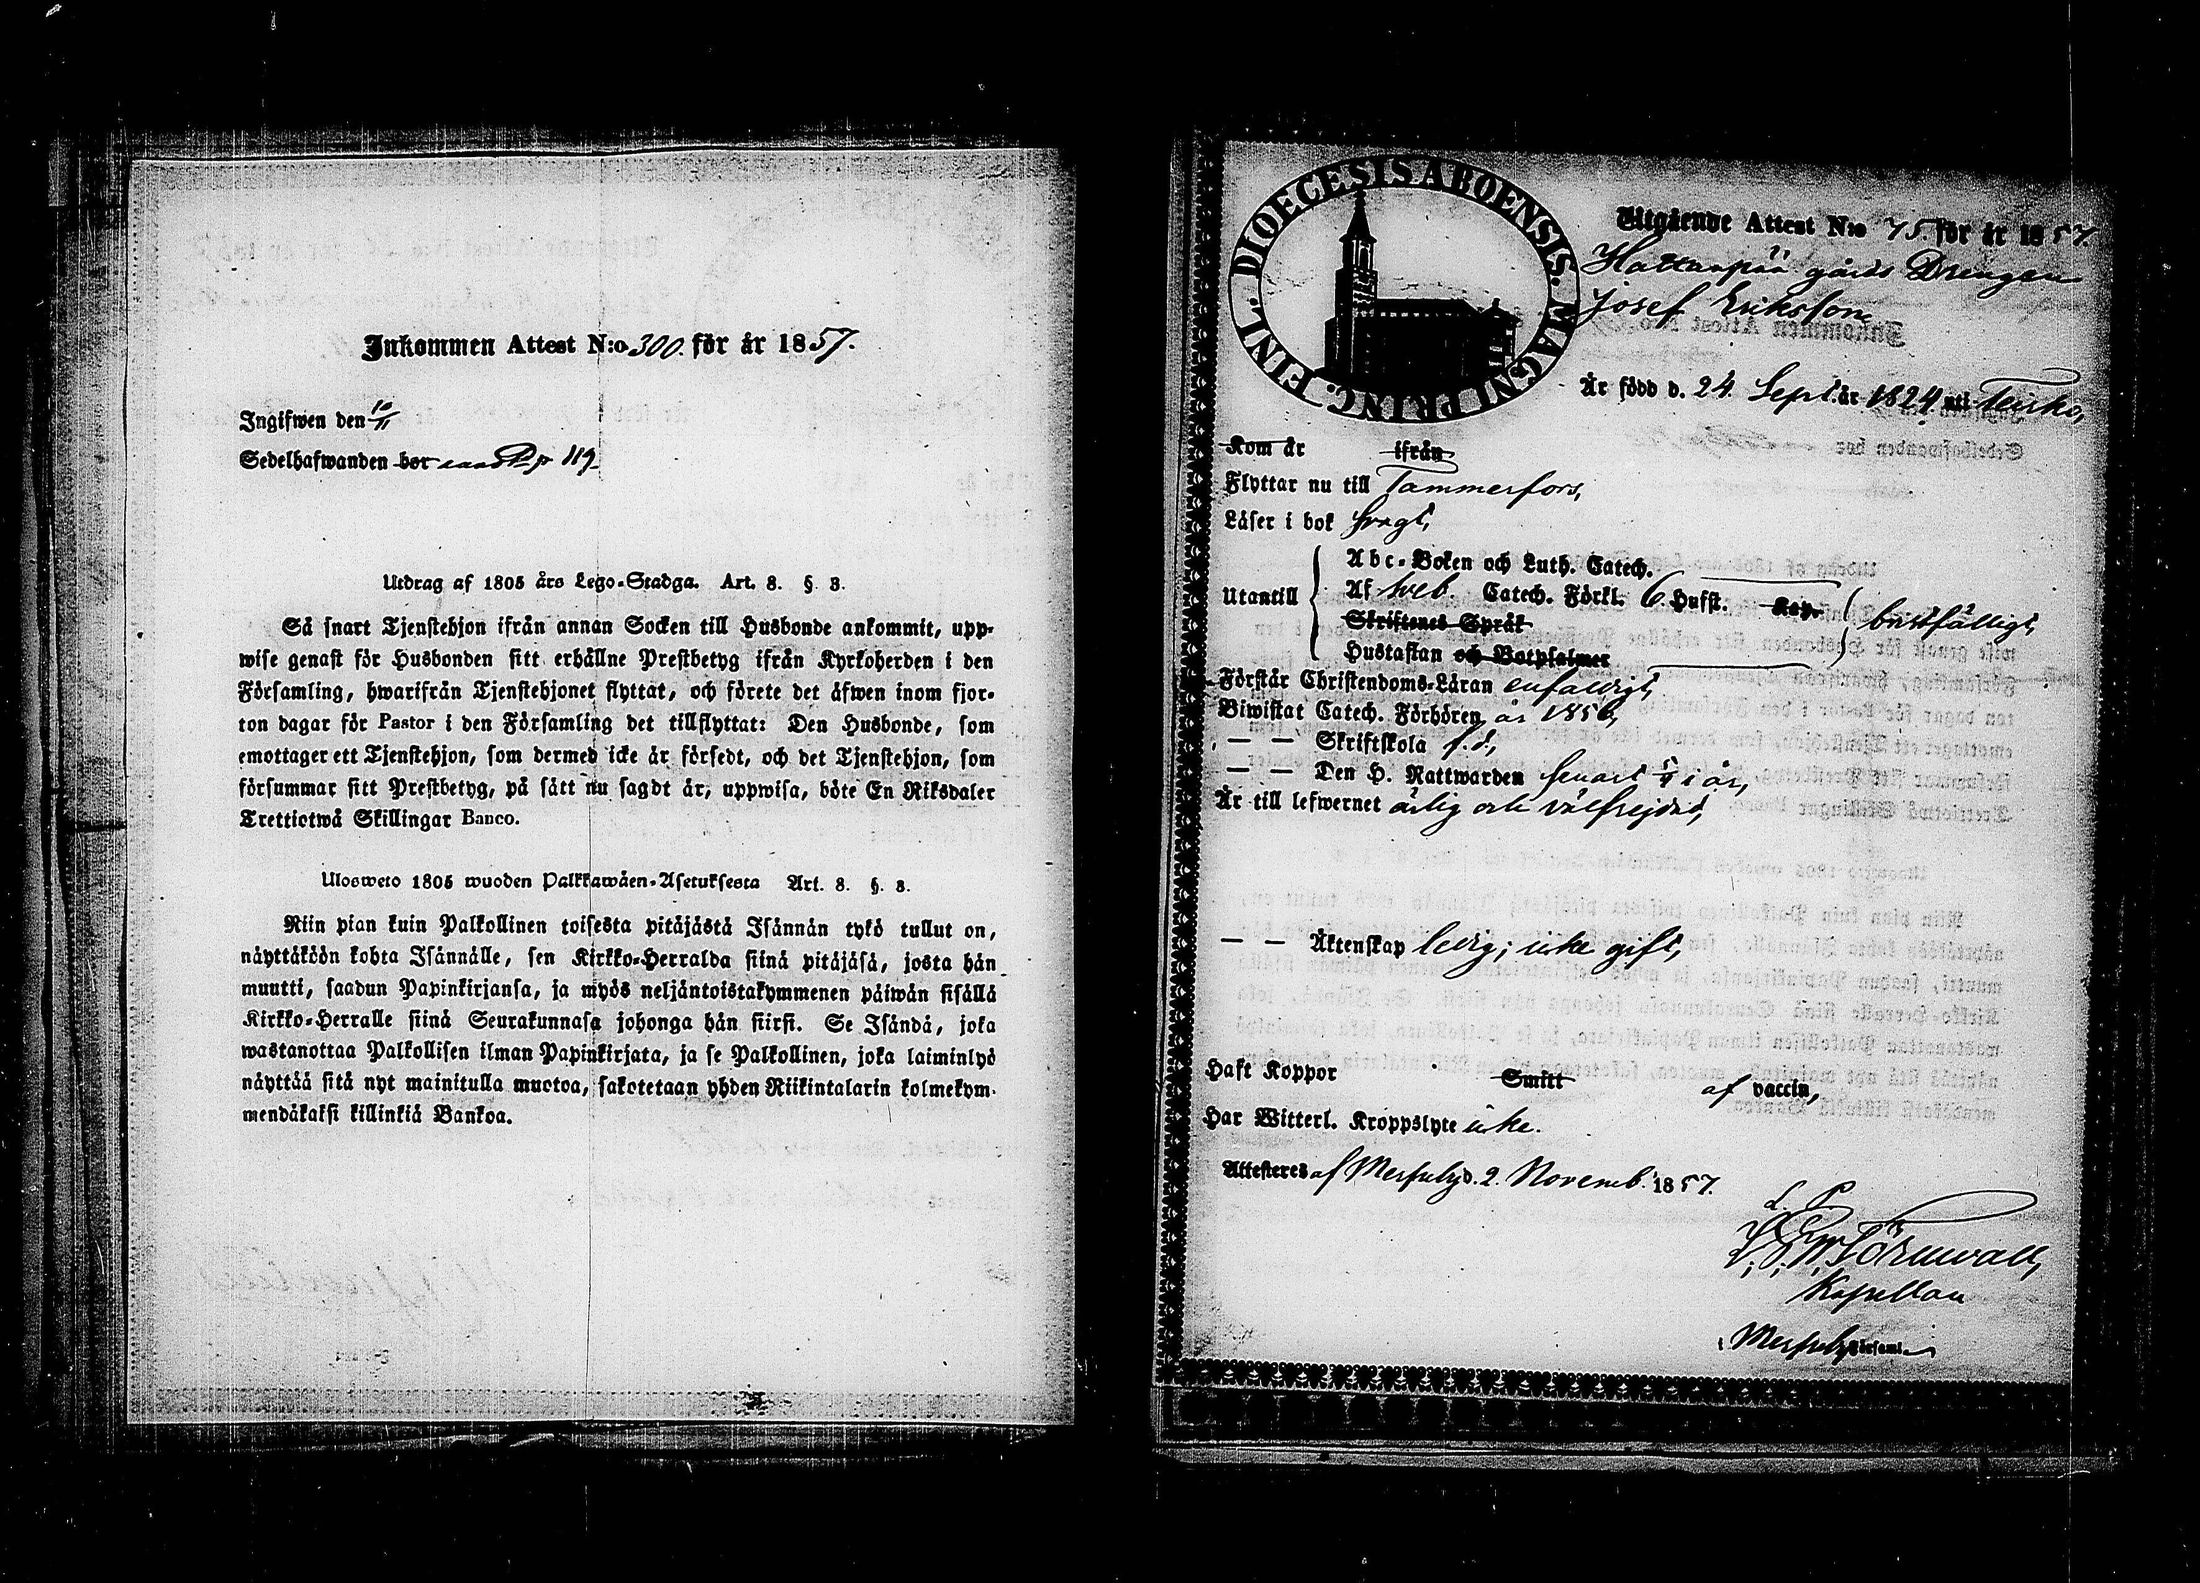 Inkommen Attest N:o 300. för år 1857.
Ingifwen den 10/11
Sedelhafwanden bor p 119
Utdrag af 1805 års Lego-Stadga. Art. 8. § 3.
Så snart Tjenstehjon ifrån annan Socken till Husbonde ankommit, upp-
wise genast för Husbonden sitt erhållne Prestbetyg ifrån Kyrkoherden i den
Församling, hwarifrån Tjenstehjonet flyttat, och förete det äfwen inom fjor-
ton dagar för Pastor i den Församling det tillflyttat: Den Husbonde, som
emottager ett Tjenstehjon, som dermed icke är försedt, och det Tjenstehjon, som
försummar sitt Prestbetyg, på sätt nu sagdt är, uppwisa, böte En Riksdaler
Trettiotwå Skillingar Banco.
Ulosweto 1805 wuoden Palkkawäen-Asetuksesta Art. 8. §. 3.
Niin pian kuin Palkollinen toisesta pitäjästä Isännän tykö tullut on,
näyttäköön kohta Isännälle, sen Kirkko-Herralda siinä pitäjäsä, josta hän
muutti, saadun Papinkirjansa, ja myös neljäntoistakymmenen päiwän sisällä
Kirkko-Herralle siinä Seurakunnasa johonga hän siirsi. Se Isändä, joka
wastanottaa Palkollisen ilman Papinkirjata, ja se Palkollinen, joka laiminlyö
näyttää sitä nyt mainitulla muotoa, sakotetaan yhden Riikintalarin kolmekym-
mendäkaksi killinkiä Bankoa.
DIOECESIS ABOENSIS. MAGNI PRINC. FINL.
Utgående Attest N:o 75. för år 1857.
Hattanpää gårds Drengen
Josef Eriksson
Är född d. 24 Sept. år 1824 uti Teisko,
Kom år ifrån
Flyttar nu till Tammerfors,
Läser i bok svagt,
Utantill
Abc-Boken och Luth. Catech.
Af Sveb. Catech. Förkl. 6. Hufst. Kap.
Skriftenes Språk
Hustaflan och Botpsalmer
bristfälligt,
Förstår Christendoms-Läran enfaldigt,
Biwistat Catech. Förhören år 1856,
— — Skriftskola f. d.,
— — Den H. Nattwarden senast 5/4 i år,
Är till lefwernet ärlig och välfrejdad,
— — Äktenskap ledig; icke gift,
Haft Koppor Smitt af vaccin,
Har Witterl. Kroppslyte icke.
Attesteras af Messuby d. 2. Novemb. 1857.
L. P.
Törnwall,
Kapellan
Messuby Församl.